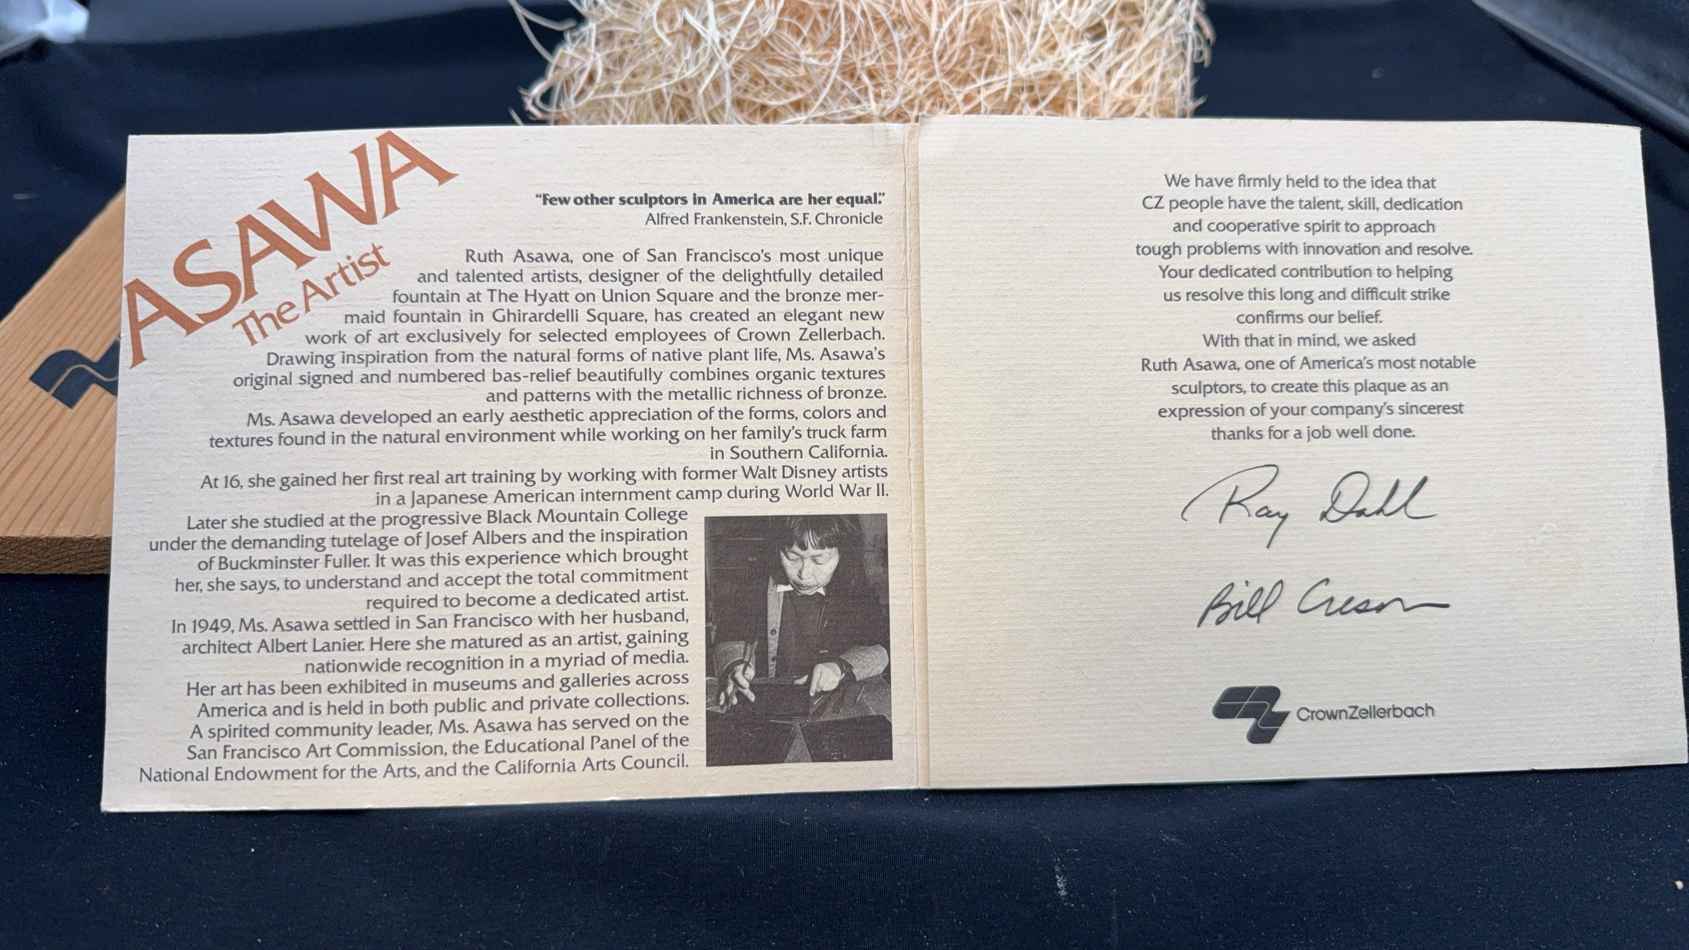 ASAWA
The Artist
“Few other sculptors in America are her equal.”
Alfred Frankenstein, S.F. Chronicle
Ruth Asawa, one of San Francisco's most unique
and talented artists, designer of the delightfully detailed
fountain at The Hyatt on Union Square and the bronze mer-
maid fountain in Ghirardelli Square, has created an elegant new
work of art exclusively for selected employees of Crown Zellerbach.
Drawing inspiration from the natural forms of native plant life, Ms. Asawa's
original signed and numbered bas-relief beautifully combines organic textures
and patterns with the metallic richness of bronze.
Ms. Asawa developed an early aesthetic appreciation of the forms, colors and
textures found in the natural environment while working on her family's truck farm
in Southern California.
At 16, she gained her first real art training by working with former Walt Disney artists
in a Japanese American internment camp during World War II.
Later she studied at the progressive Black Mountain College
under the demanding tutelage of Josef Albers and the inspiration
of Buckminster Fuller. It was this experience which brought
her, she says, to understand and accept the total commitment
required to become a dedicated artist.
In 1949, Ms. Asawa settled in San Francisco with her husband,
architect Albert Lanier. Here she matured as an artist, gaining
nationwide recognition in a myriad of media.
Her art has been exhibited in museums and galleries across
America and is held in both public and private collections.
A spirited community leader, Ms. Asawa has served on the
San Francisco Art Commission, the Educational Panel of the
National Endowment for the Arts, and the California Arts Council.
We have firmly held to the idea that
CZ people have the talent, skill, dedication
and cooperative spirit to approach
tough problems with innovation and resolve.
Your dedicated contribution to helping
us resolve this long and difficult strike
confirms our belief.
With that in mind, we asked
Ruth Asawa, one of America's most notable
sculptors, to create this plaque as an
expression of your company's sincerest
thanks for a job well done.
Ray Dahl
Bill Creson
CrownZellerbach